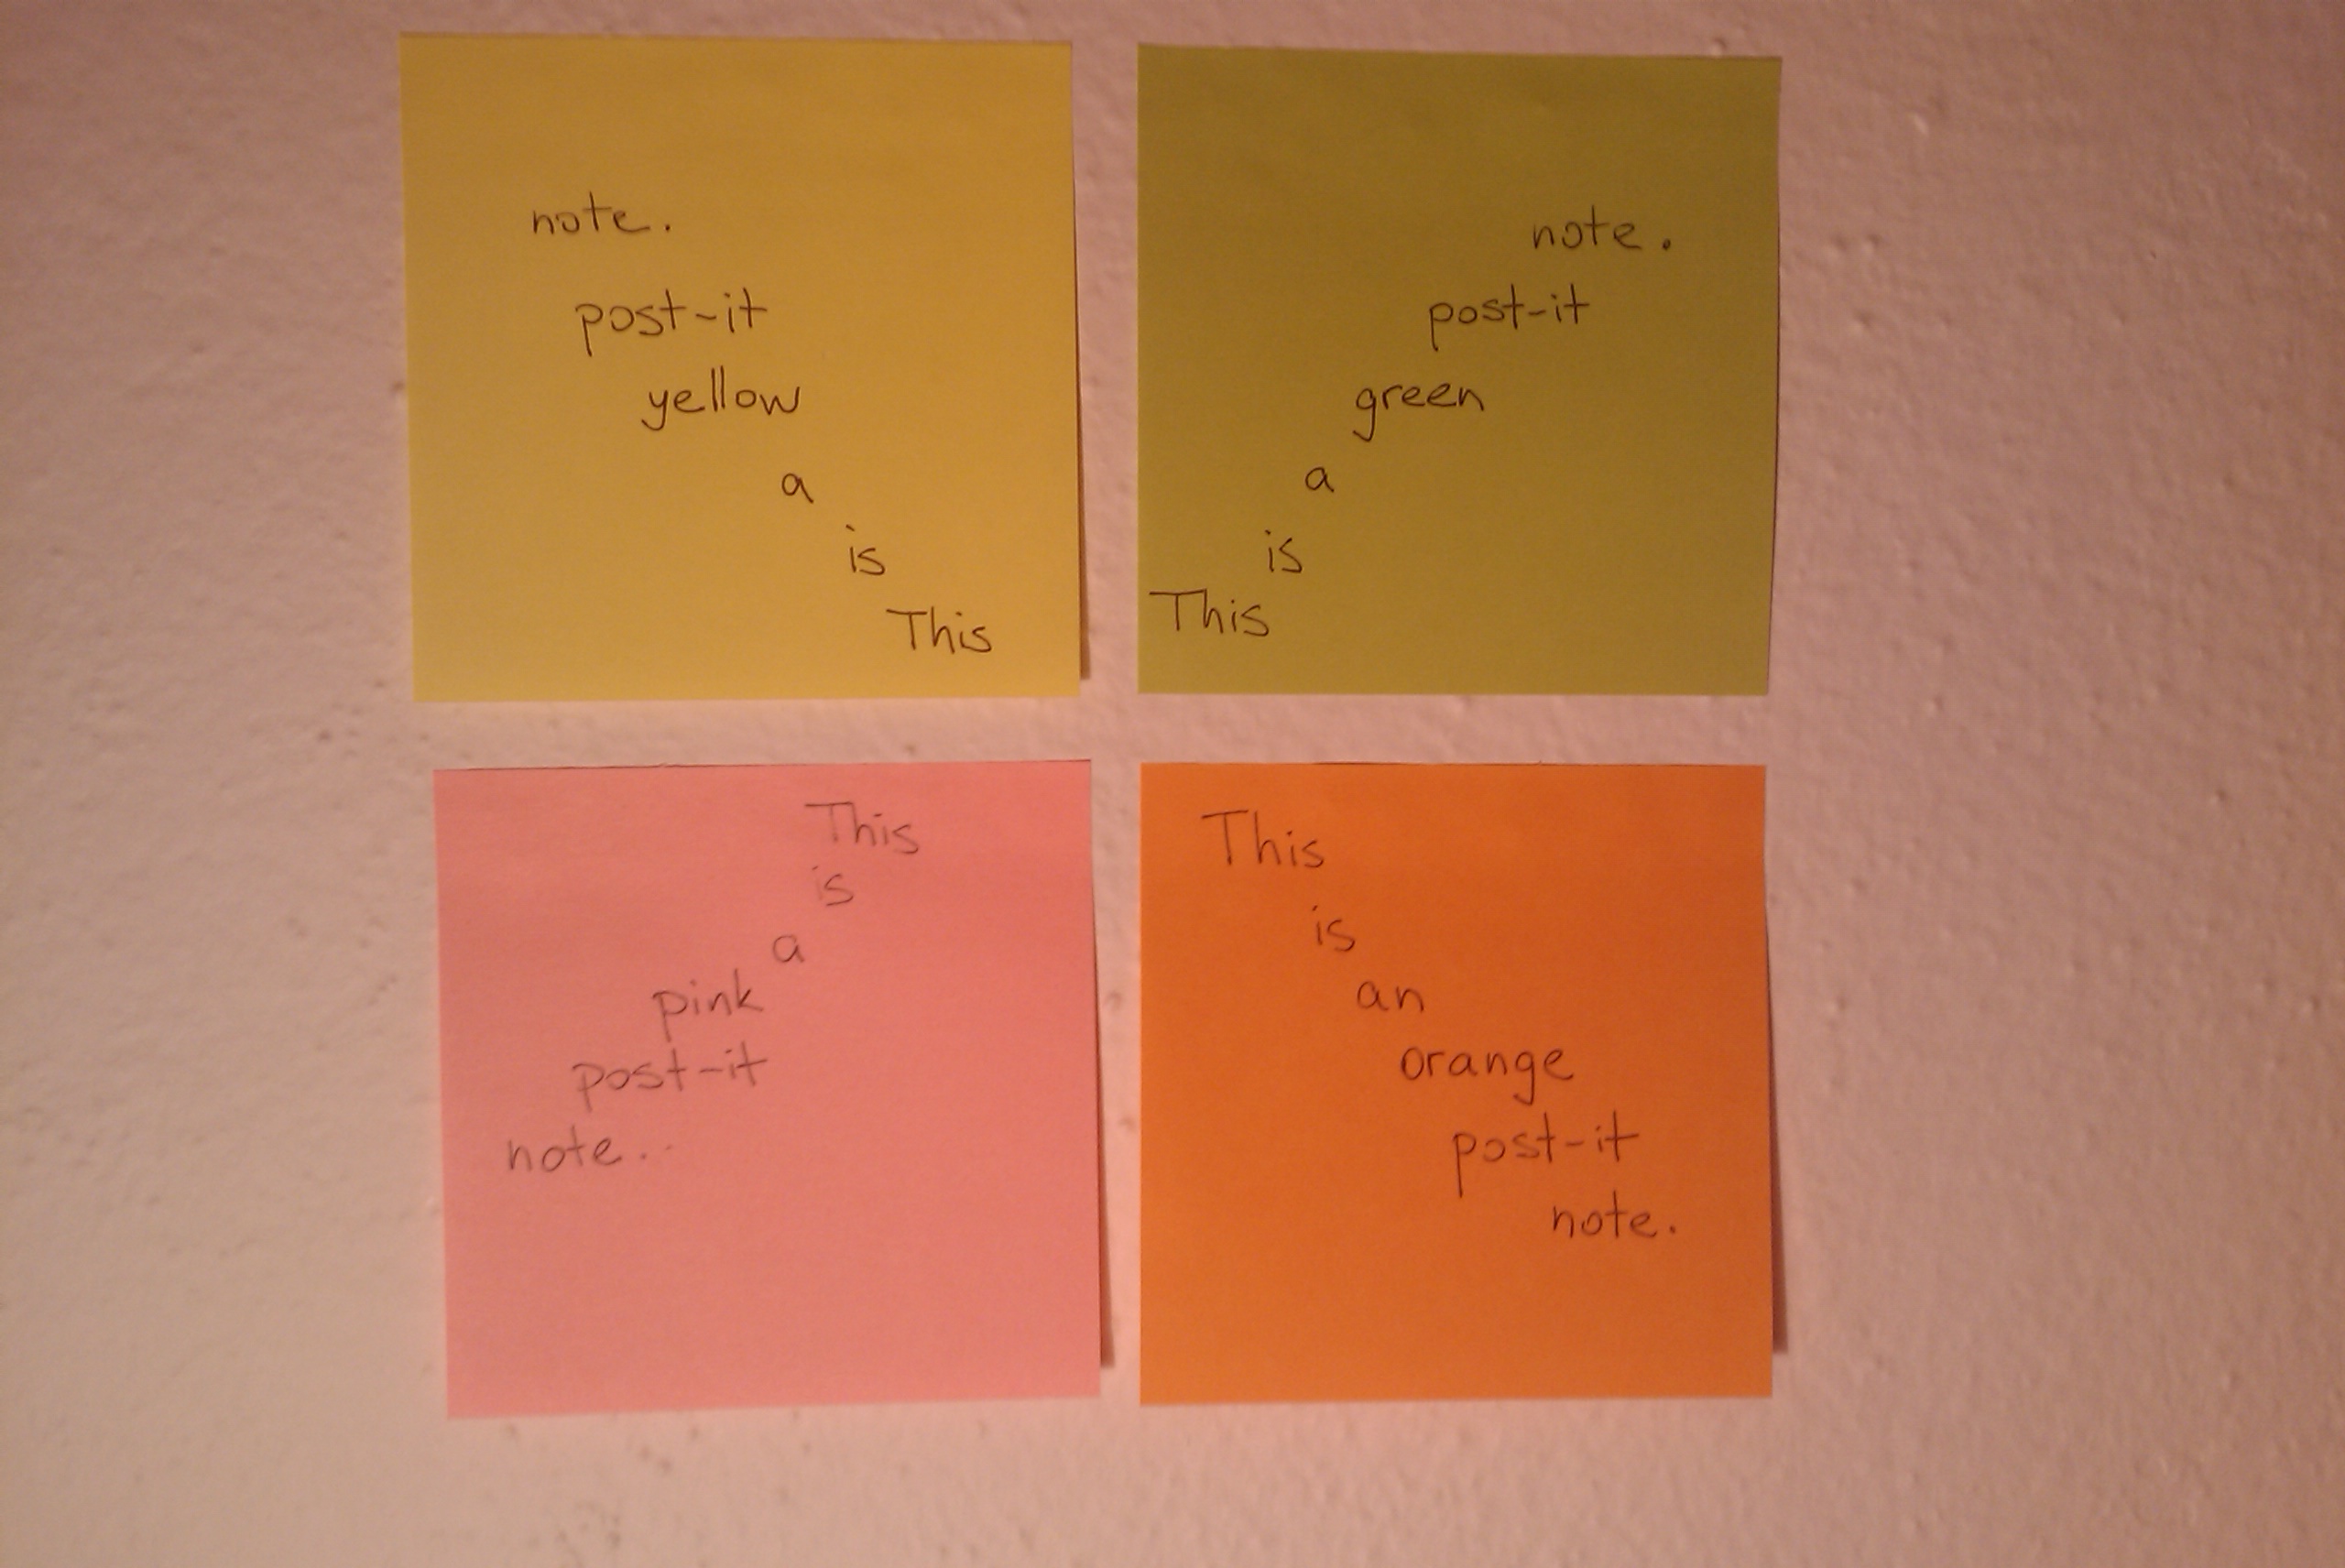 note.
post-it
yellow
a
is
This
note.
post-it
green
a
is
This
This
is
a
pink
post-it
note..
This
is
an
orange
post-it
note.